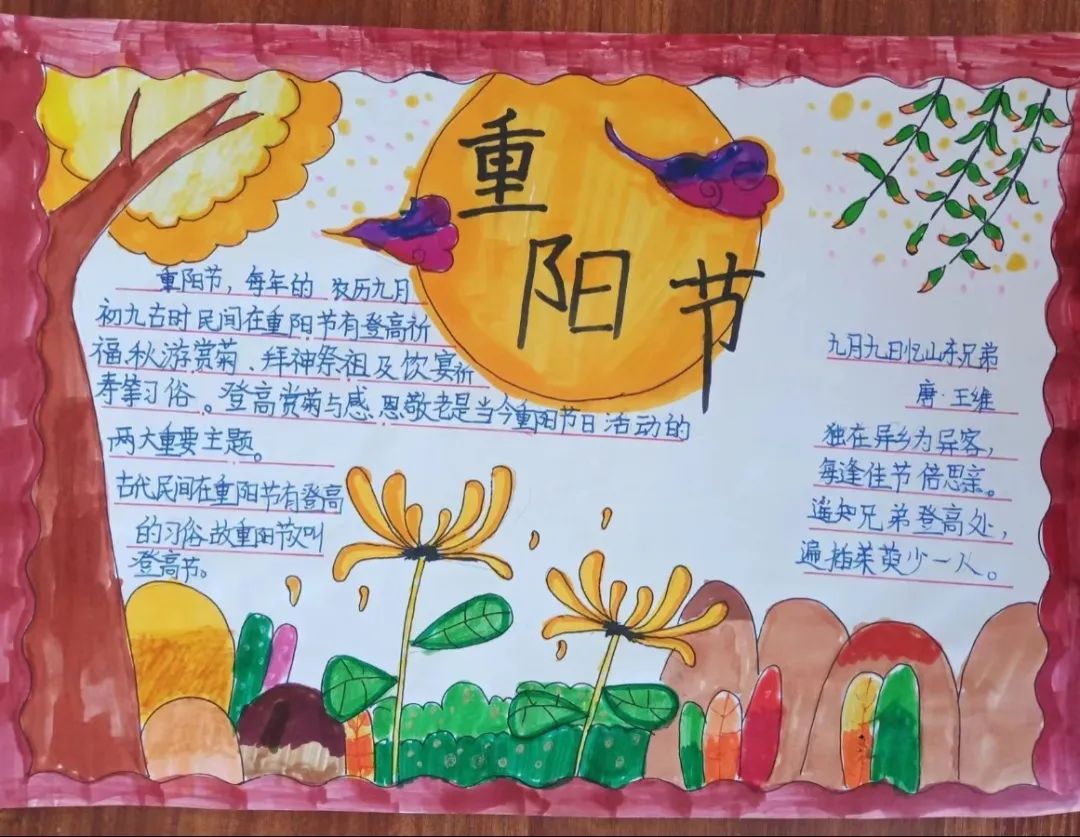 重阳节
重阳节，每年的农历九月
初九古时民间在重阳节有登高祈
福、秋游赏菊、拜神祭祖及饮宴祈
寿等习俗。登高赏菊与感恩敬老是当今重阳节日活动的
两大重要主题。
古代民间在重阳节有登高
的习俗故重阳节又叫
登高节。
九月九日忆山东兄弟
唐·王维
独在异乡为异客，
每逢佳节倍思亲。
遥知兄弟登高处，
遍插茱萸少一人。